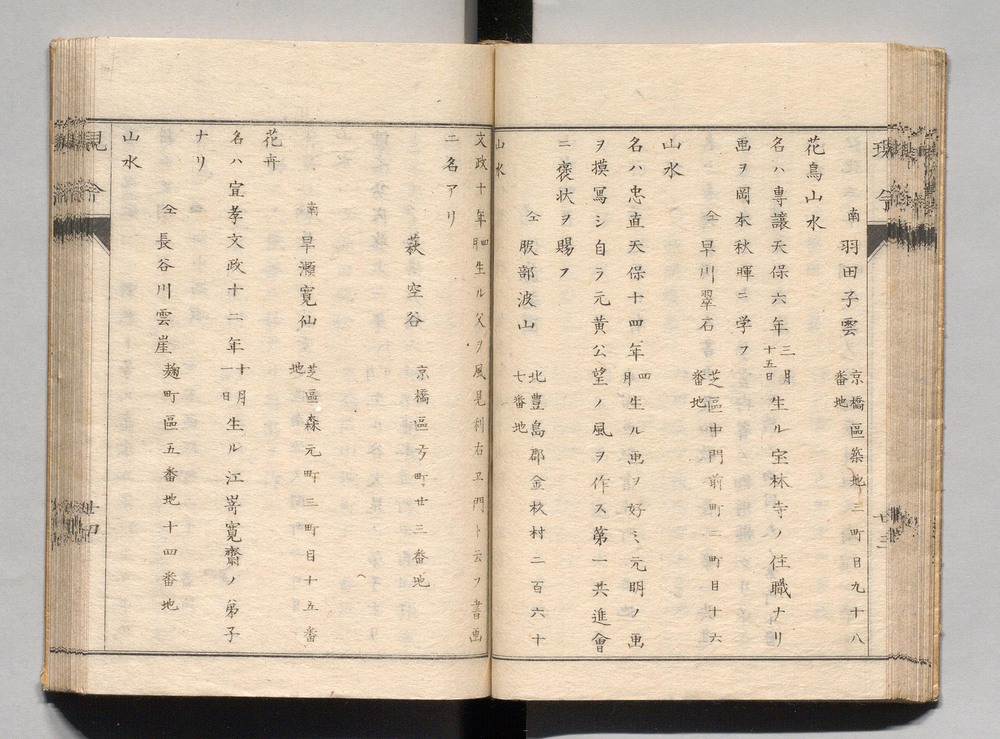 現今
廿三
南 羽田子雲 京橋區築地三町目九十八番地
花鳥山水
名ハ専讓天保六年三月十五日生ル宝林寺ノ住職ナリ
画ヲ岡本秋暉ニ学フ
仝 早川翠石 芝區中門前町三町目十六番地
山水
名ハ忠直天保十四年四月生ル画ヲ好ミ元明ノ画
ヲ摸寫シ自ラ元黄公望ノ風ヲ作ス第一共進會
ニ褒状ヲ賜フ
仝 服部波山 北豊島郡金杦村二百六十七番地
山水
文政十年四月生ル父ヲ風見利右エ門ト云フ書画
ニ名アリ
萩空谷 京橋區弓町廿三番地
南 早瀬寛仙 芝區森元町三町目十五番地
花卉
名ハ宜孝文政十二年十月一日生ル江嵜寛齋ノ弟子
ナリ
仝 長谷川雲崖 麹町區五番地十四番地
山水
現今
廿四